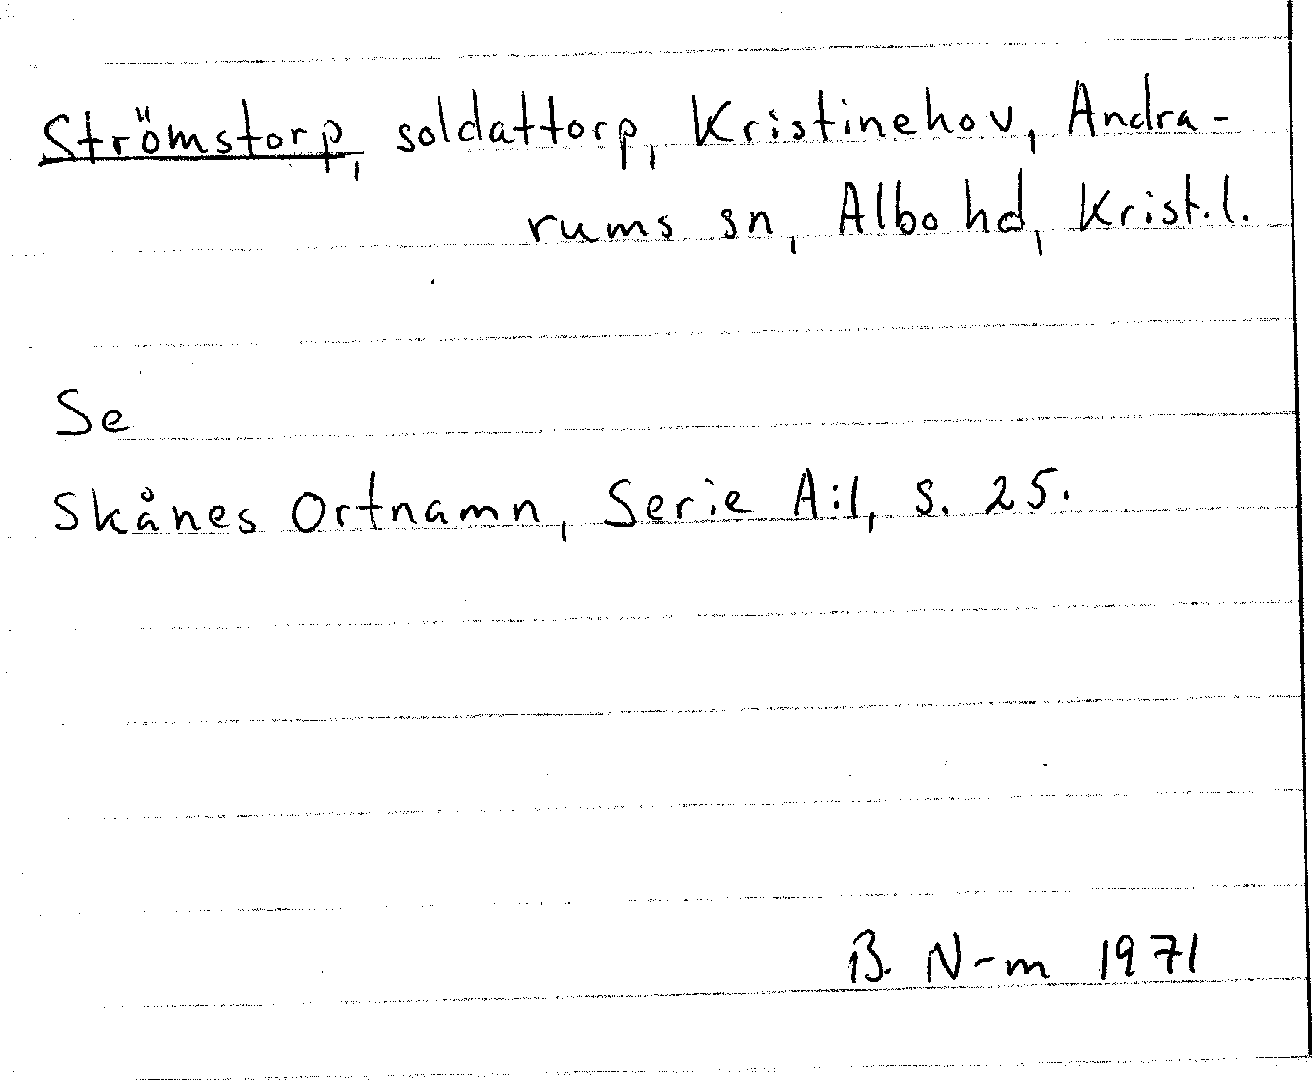 Strömstorp, soldattorp, Kristinehov, Andra-
rums sn, Albo hd, Krist.l.
Se
Skånes Ortnamn, Serie A:1, s. 25.
B. N-m 1971